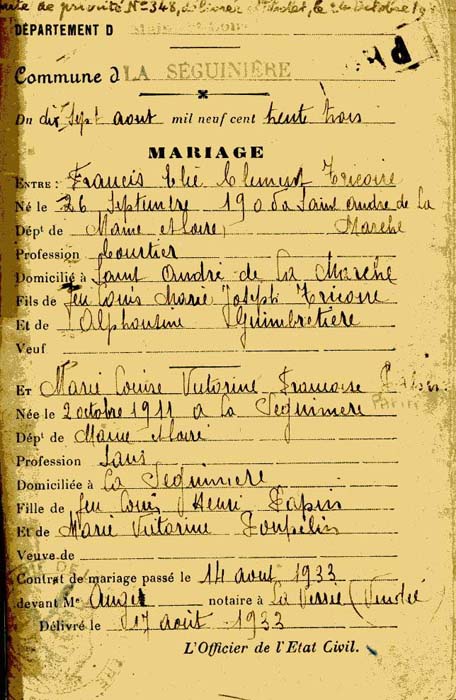 carte de priorité N° 348, délivrée à Cholet, le 24 Octobre
DÉPARTEMENT D
Commune d LA SÉGUINIÈRE
Du dix Sept aout mil neuf cent trente trois
MARIAGE
ENTRE : Francis Elie Clement Tricoire
Né le 26 Septembre 190 à Saint andre de La
Dépt de Maine et Loire, Marche
Profession Courtier
Domicilié à Saint André de La Marche
Fils de feu Louis Marie Joseph Tricoire
Et de Alphonsine Guimbretiere
Veuf
ET Marie Louise Victorine Francoise Papin
Née le 2 octobre 1911 a La Seguiniere
PAPIN
Dépt de Maine et Loire
Profession Sans
Domiciliée à La Seguiniere
Fille de feu Louis Henri Papin
Et de Marie Victorine Loupelin
Veuve de
Contrat de mariage passé le 14 aout 1933
devant Me Auger notaire à La Verrie (Vendée
Délivré le 17 août 1933
L'Officier de l'Etat Civil.